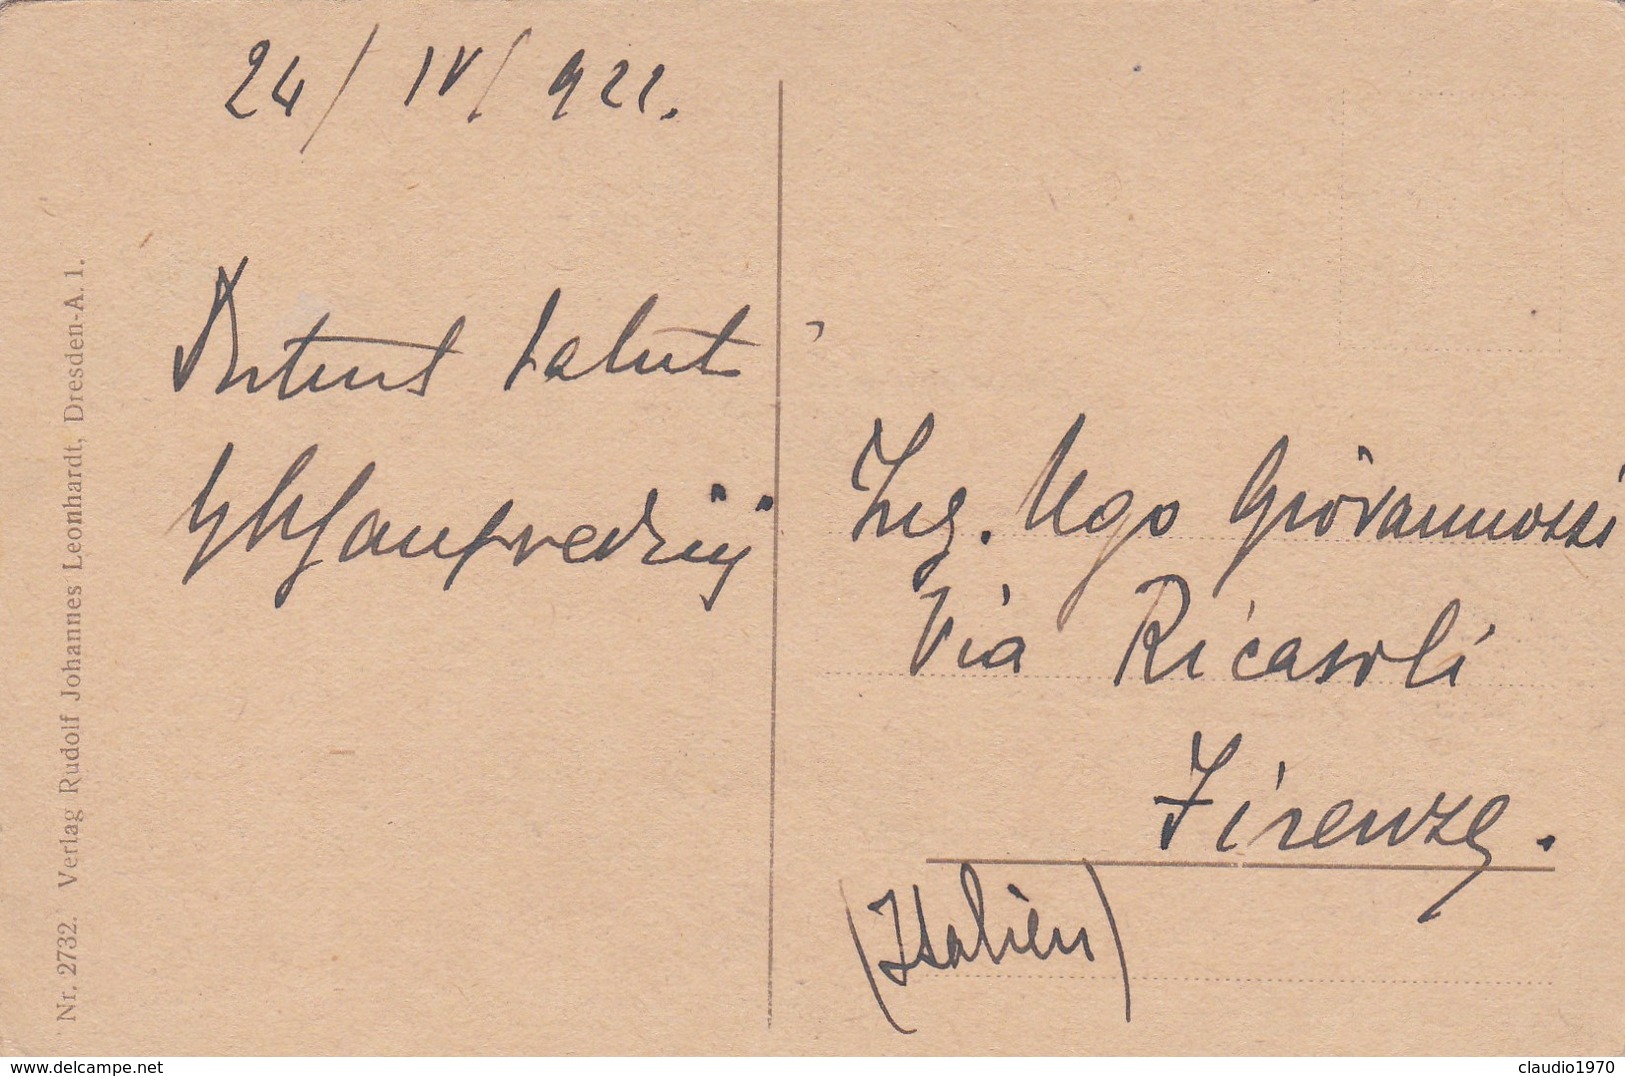 24/IV/922.
saluti
Ing. Ugo Giovannozzi
Via Ricasoli
Firenze.
(Italien)
Nr. 2732. Verlag Rudolf Johannes Leonhardt, Dresden-A. 1.
www.delcampe.net
claudio1970